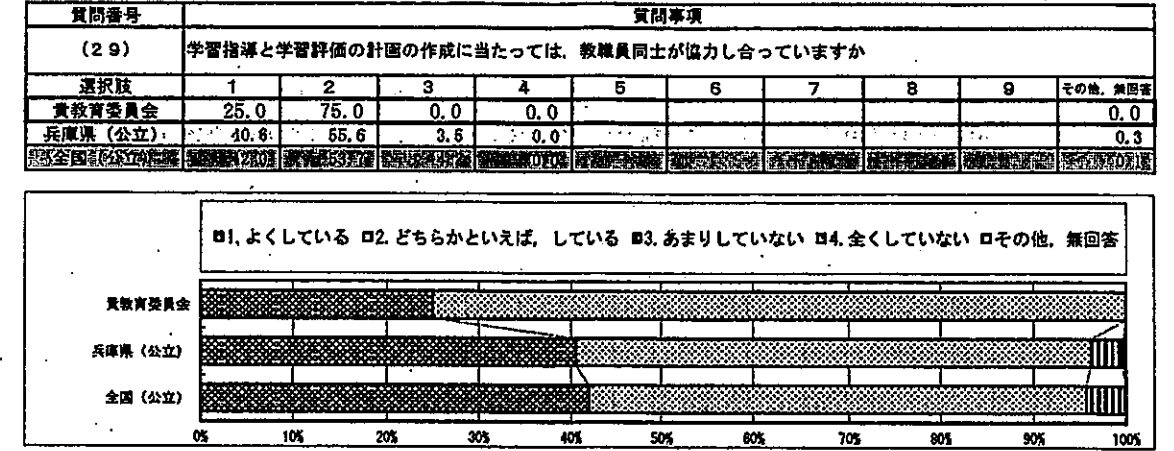 質問番号 質問事項
(29) 学習指導と学習評価の計画の作成に当たっては，教職員同士が協力し合っていますか
選択肢 1 2 3 4 5 6 7 8 9 その他，無回答
貴教育委員会 25.0 75.0 0.0 0.0 0.0
兵庫県（公立） 40.6 55.6 3.5 0.0 0.3
全国（公立）
1.よくしている 2.どちらかといえば，している 3.あまりしていない 4.全くしていない その他，無回答
貴教育委員会
兵庫県（公立）
全国（公立）
0% 10% 20% 30% 40% 50% 60% 70% 80% 90% 100%